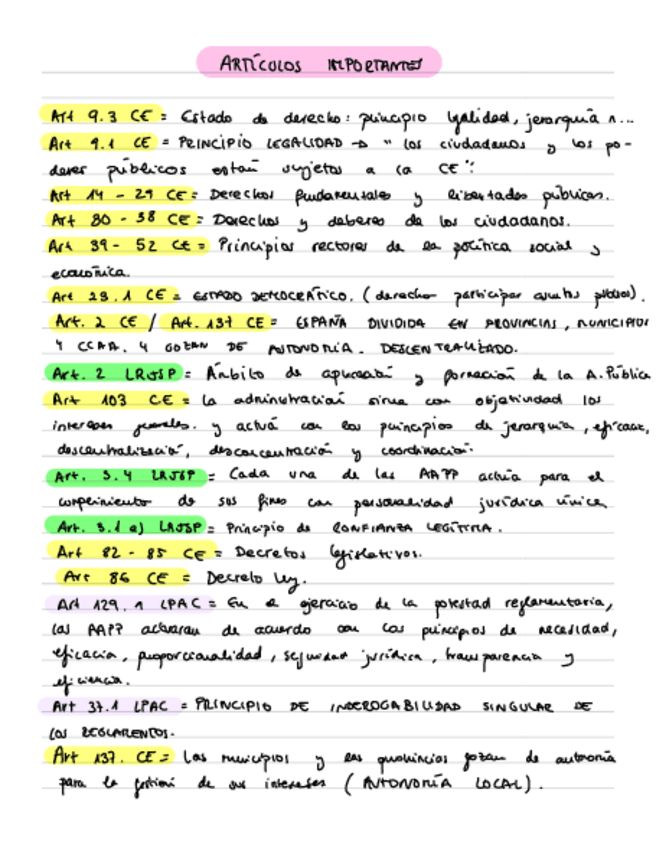 ARTÍCULOS IMPORTANTES
Art 9.3 CE = Estado de derecho: principio legalidad, jerarquía n...
Art 9.1 CE = PRINCIPIO LEGALIDAD → "los ciudadanos y los po-
deres públicos están sujetos a la CE".
Art 14 - 29 CE = Derechos fundamentales y libertades públicas.
Art 30 - 38 CE = Derechos y deberes de los ciudadanos.
Art 39 - 52 CE = Principios rectores de la política social y
económica.
Art 23.1 CE = ESTADO DEMOCRÁTICO. (derecho participar asuntos públicos).
Art. 2 CE / Art. 137 CE = ESPAÑA DIVIDIDA EN PROVINCIAS, MUNICIPIOS
Y CCAA. Y GOZAN DE AUTONOMÍA. DESCENTRALIZADO.
Art. 2 LRJSP = Ámbito de aplicación y formación de la A. Pública
Art 103 CE = La administración sirve con objetividad los
intereses generales. y actúa con los principios de jerarquía, eficacia,
descentralización, desconcentración y coordinación.
Art. 3.4 LRJSP = Cada una de las AAPP actúa para el
cumplimiento de sus fines con personalidad jurídica única
Art. 3.1 e) LRJSP = Principio de CONFIANZA LEGÍTIMA.
Art 82 - 85 CE = Decretos legislativos.
Art 86 CE = Decreto ley.
Art 129.1 LPAC = En el ejercicio de la potestad reglamentaria,
las AAPP actuaran de acuerdo con los principios de necesidad,
eficacia, proporcionalidad, seguridad jurídica, transparencia y
eficiencia.
Art 37.1 LPAC = PRINCIPIO DE INDEROGABILIDAD SINGULAR DE
LOS REGLAMENTOS.
Art 137. CE = Los municipios y las provincias gozan de autonomía
para la gestión de sus intereses (AUTONOMÍA LOCAL).